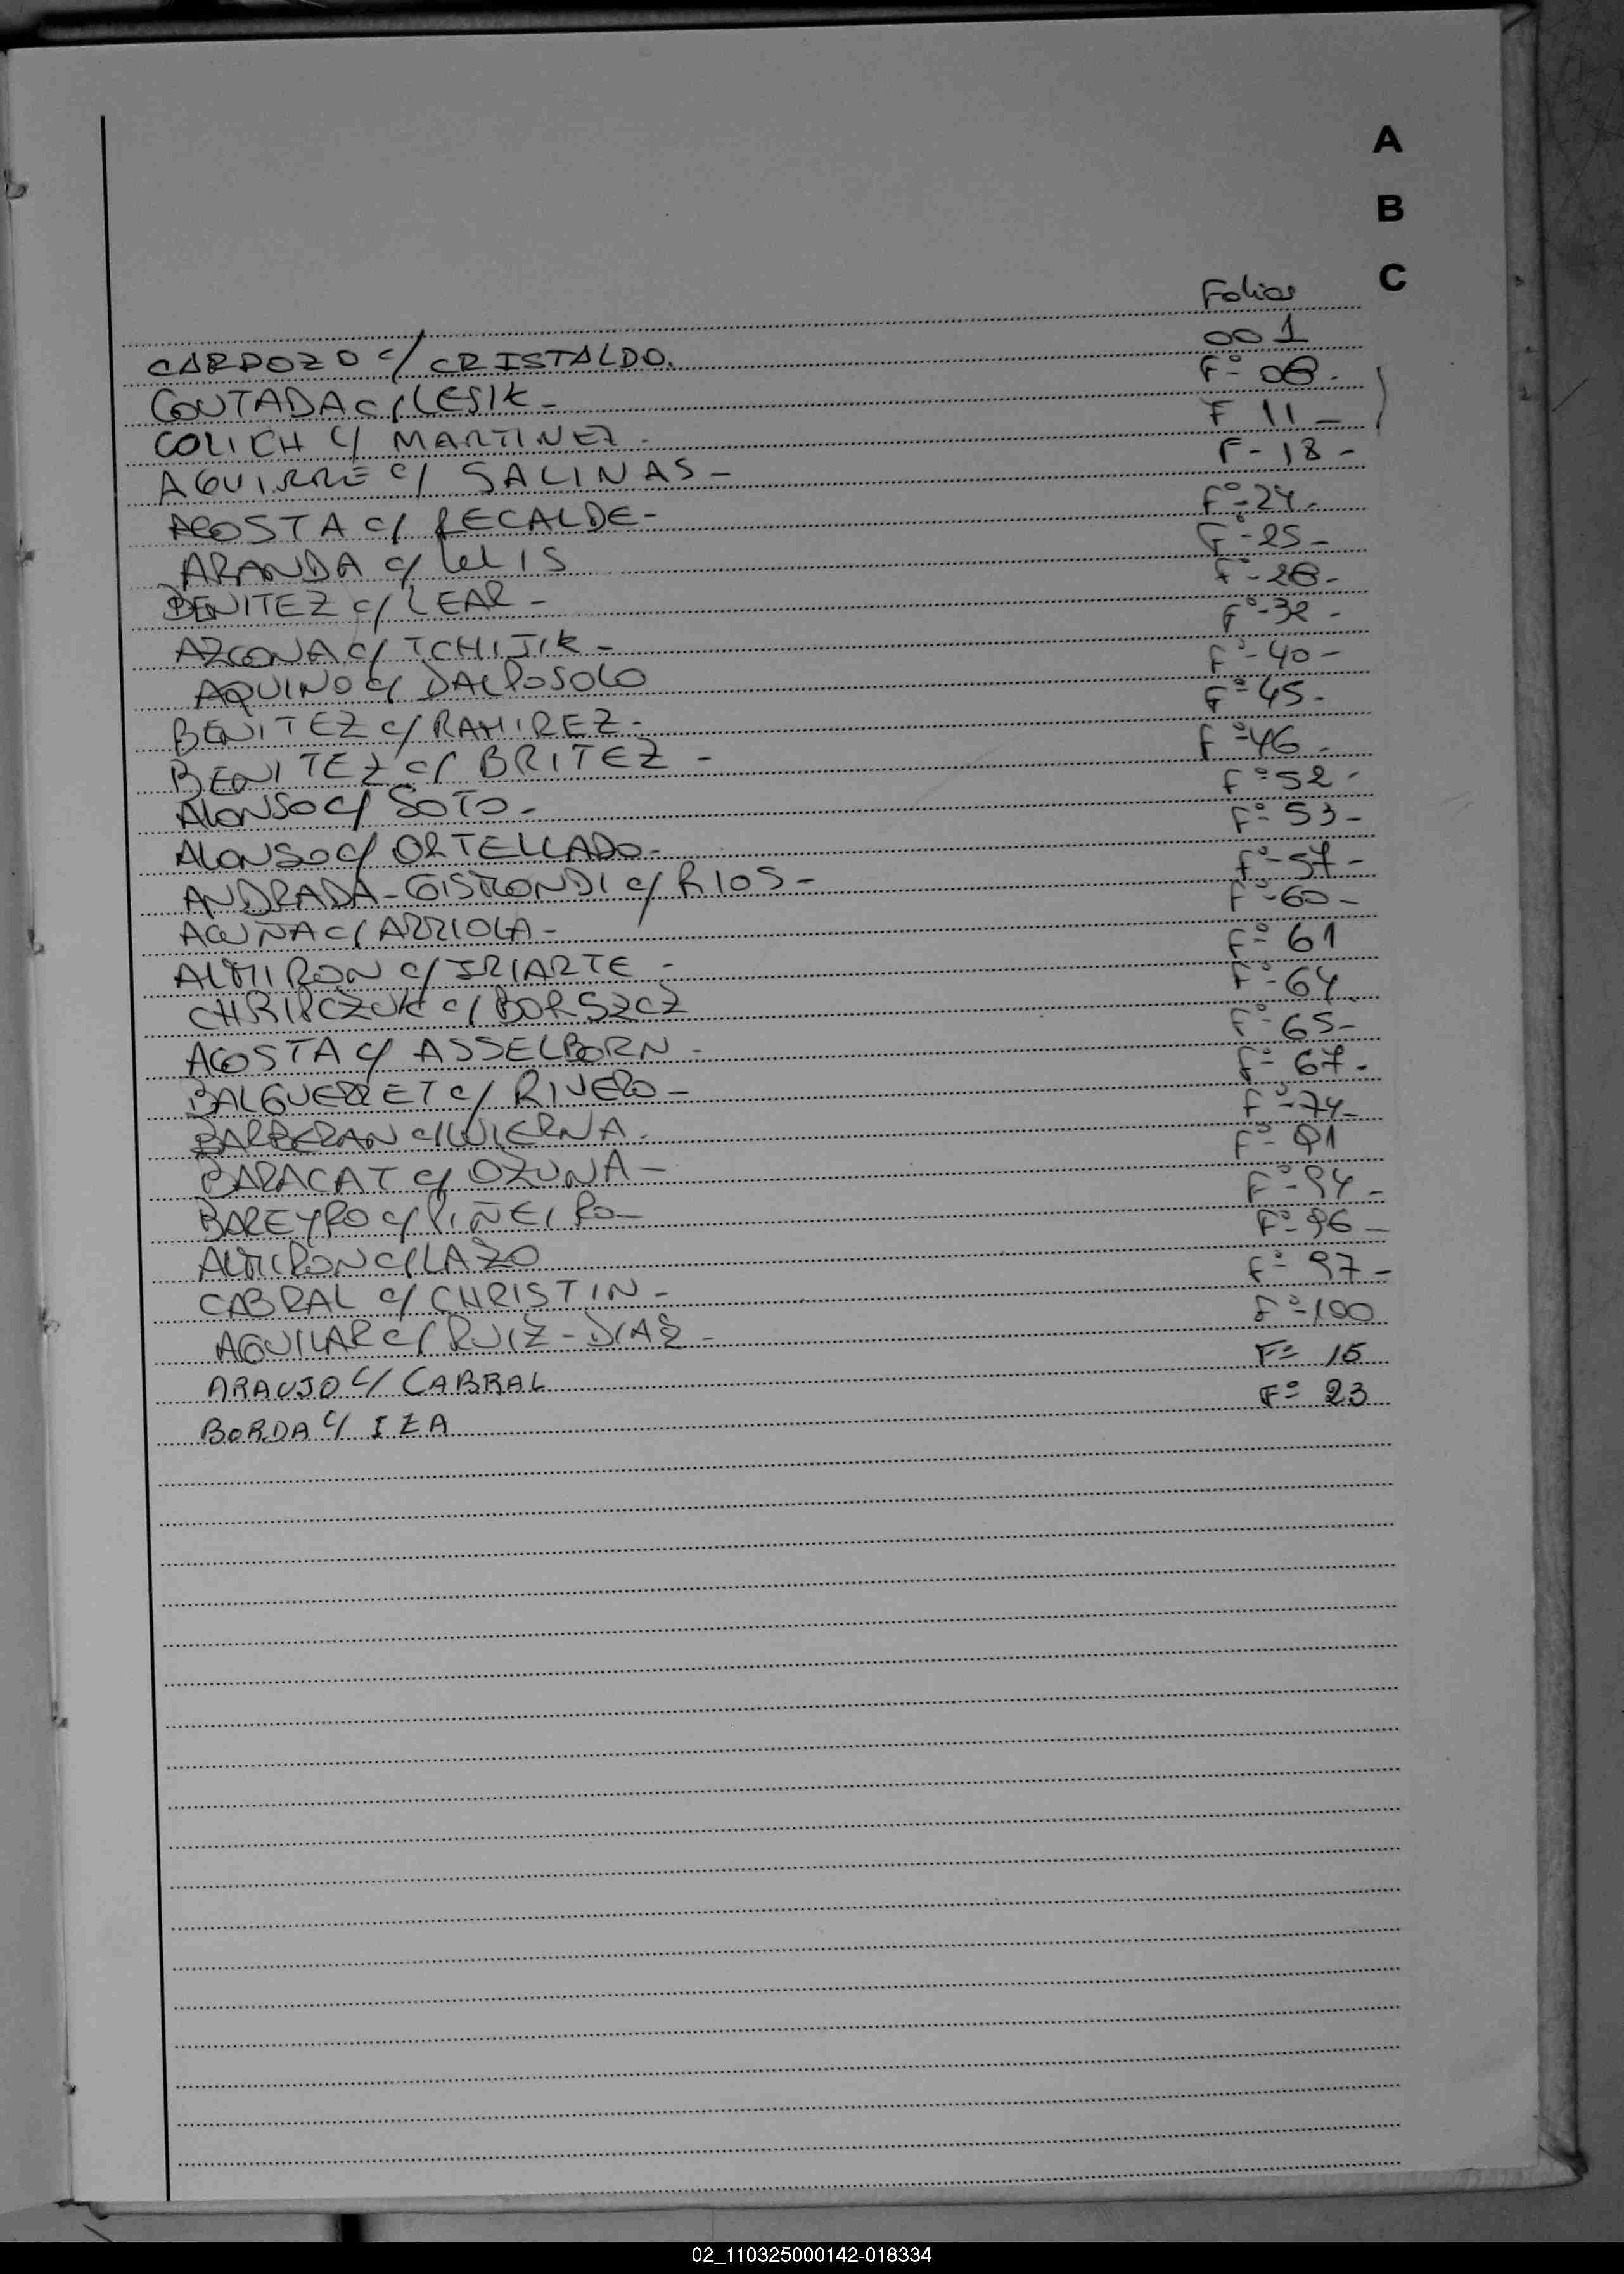 A
B
C
Folios
CARDOZO c/ CRISTALDO. 001
COUTADA c/ LESIK - Fº 08 -
COLICH c/ MARTINEZ - F 11 -
AGUIRRE c/ SALINAS - F - 18 -
ACOSTA c/ RECALDE - Fº - 24 -
ARANDA c/ Fº - 25 -
BENITEZ c/ LEAR - Fº - 28 -
AZCONA c/ TCHIJIK - Fº - 32 -
AQUINO c/ DALPOSOLO Fº - 40 -
BENITEZ c/ RAMIREZ - Fº 45 -
BENITEZ c/ BRITEZ - Fº 46 -
ALONSO c/ SOTO - Fº 52 -
ALONSO c/ ORTELLADO - Fº 53 -
ANDRADA - c/ RIOS - Fº - 57 -
ACUÑA c/ ARRIOLA - Fº - 60 -
ALMIRON c/ IRIARTE - Fº 61
CHRIPCZUK c/ BORSZCZ Fº - 64
ACOSTA c/ ASSELBORN - Fº - 65 -
BALGUERRET c/ RIVERO - Fº 67 -
BARBERAN c/ WIERNA - Fº - 74 -
BARACAT c/ OZUNA - Fº - 91
BAREYRO c/ PIÑEIRO - Fº - 94 -
ALMIRON c/ LAZO Fº 96 -
CABRAL c/ CHRISTIN - Fº 97 -
AGUILAR c/ RUIZ - DIAZ - Fº - 100
ARAUJO c/ CABRAL Fº 15
BORDA c/ IZA Fº 23
02_110325000142-018334